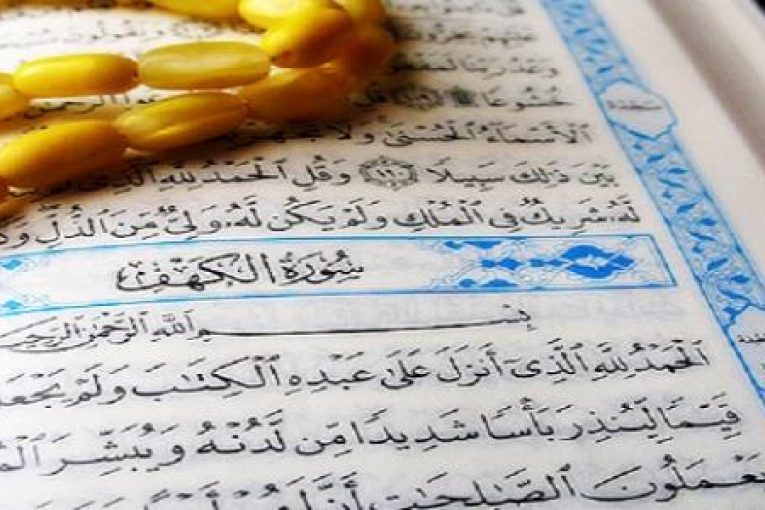 وَيَقُولُونَ
خُشُوعًا ۩ قُلِ
الْأَسْمَاءُ الْحُسْنَىٰ وَلَا تَجْهَرْ
بَيْنَ ذَٰلِكَ سَبِيلًا ١١٠ وَقُلِ الْحَمْدُ لِلَّهِ الَّذِي
لَّهُ شَرِيكٌ فِي الْمُلْكِ وَلَمْ يَكُن لَّهُ وَلِيٌّ مِّنَ الذُّلِّ
سُورَةُ الْكَهْفِ
بِسْمِ اللَّهِ الرَّحْمَٰنِ الرَّحِيمِ
الْحَمْدُ لِلَّهِ الَّذِي أَنزَلَ عَلَىٰ عَبْدِهِ الْكِتَابَ وَلَمْ يَجْعَل
قَيِّمًا لِّيُنذِرَ بَأْسًا شَدِيدًا مِّن لَّدُنْهُ وَيُبَشِّرَ
يَعْمَلُونَ الصَّالِحَاتِ أَنَّ لَهُمْ أَجْرًا